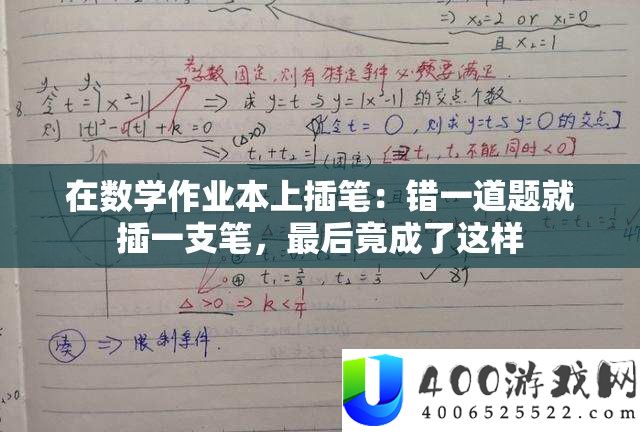 => x₂=2 or x₁=0
且 x₂=1
若参数固定,则有特定条件必须要满足.
8. 令 t=|x²-1| => 求 y=t 与 y=|x²-1| 的交点个数.
则 |t|²-|t|+k=0 (Δ>0) [令t=0,则求y=t与y=0的交点]
=> t₁+t₂=1 (固定) [t₁,t₂不能同时<0]
在数学作业本上插笔：错一道题就
插一支笔，最后竟成了这样
t₁=2/3, t₂=1/3 ✓ 8个
Δ>0 => k<1/4
凑 => 限制条件.
400游戏网
4006525522.com